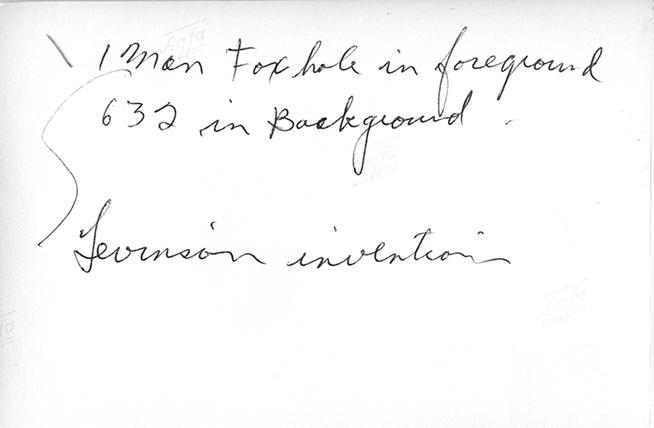 1 Man Foxhole in foreground
632 in Background
Levinson invention
Agfa
Agfa
Agfa